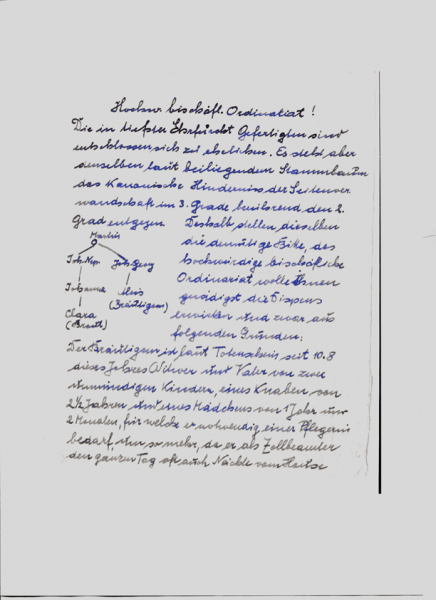 Hochw. bischöfl. Ordinariat!
Die in tiefster Ehrfurcht Gefertigten sind
entschlossen, sich zu ehelichen. Es steht aber
denselben laut beiliegendem Stammbaum
das Kanonische Hindernis der Seitenver
wandschaft im 3. Grade berührend den 2.
Grad entgegen
Martin
Joh. Nep. Joh. Georg
Johanna Alois
(Bräutigam)
Clara
(Braut)
Deshalb stellen dieselben
die demütige Bitte, das
hochwürdige bischöfliche
Ordinariat wolle Ihnen
gnädigst die Dispens
erwirken und zwar aus
folgenden Gründen:
Der Bräutigam ist laut Totenschein seit 10.8
dieses Jahres Witwer und Vater von zwei
unmündigen Kindern, eines Knaben von
2 1/2 Jahren und eines Mädchens von 1 Jahr und
2 Monaten, für welche er notwendig einer Pflegerin
bedarf, um so mehr, da er als Zollbeamter
den ganzen Tag oft auch Nächte vom Hause